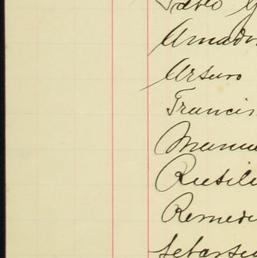 Pablo G
Amado
Arturo
Francis
Manue
Rutili
Remedi
Sebasti